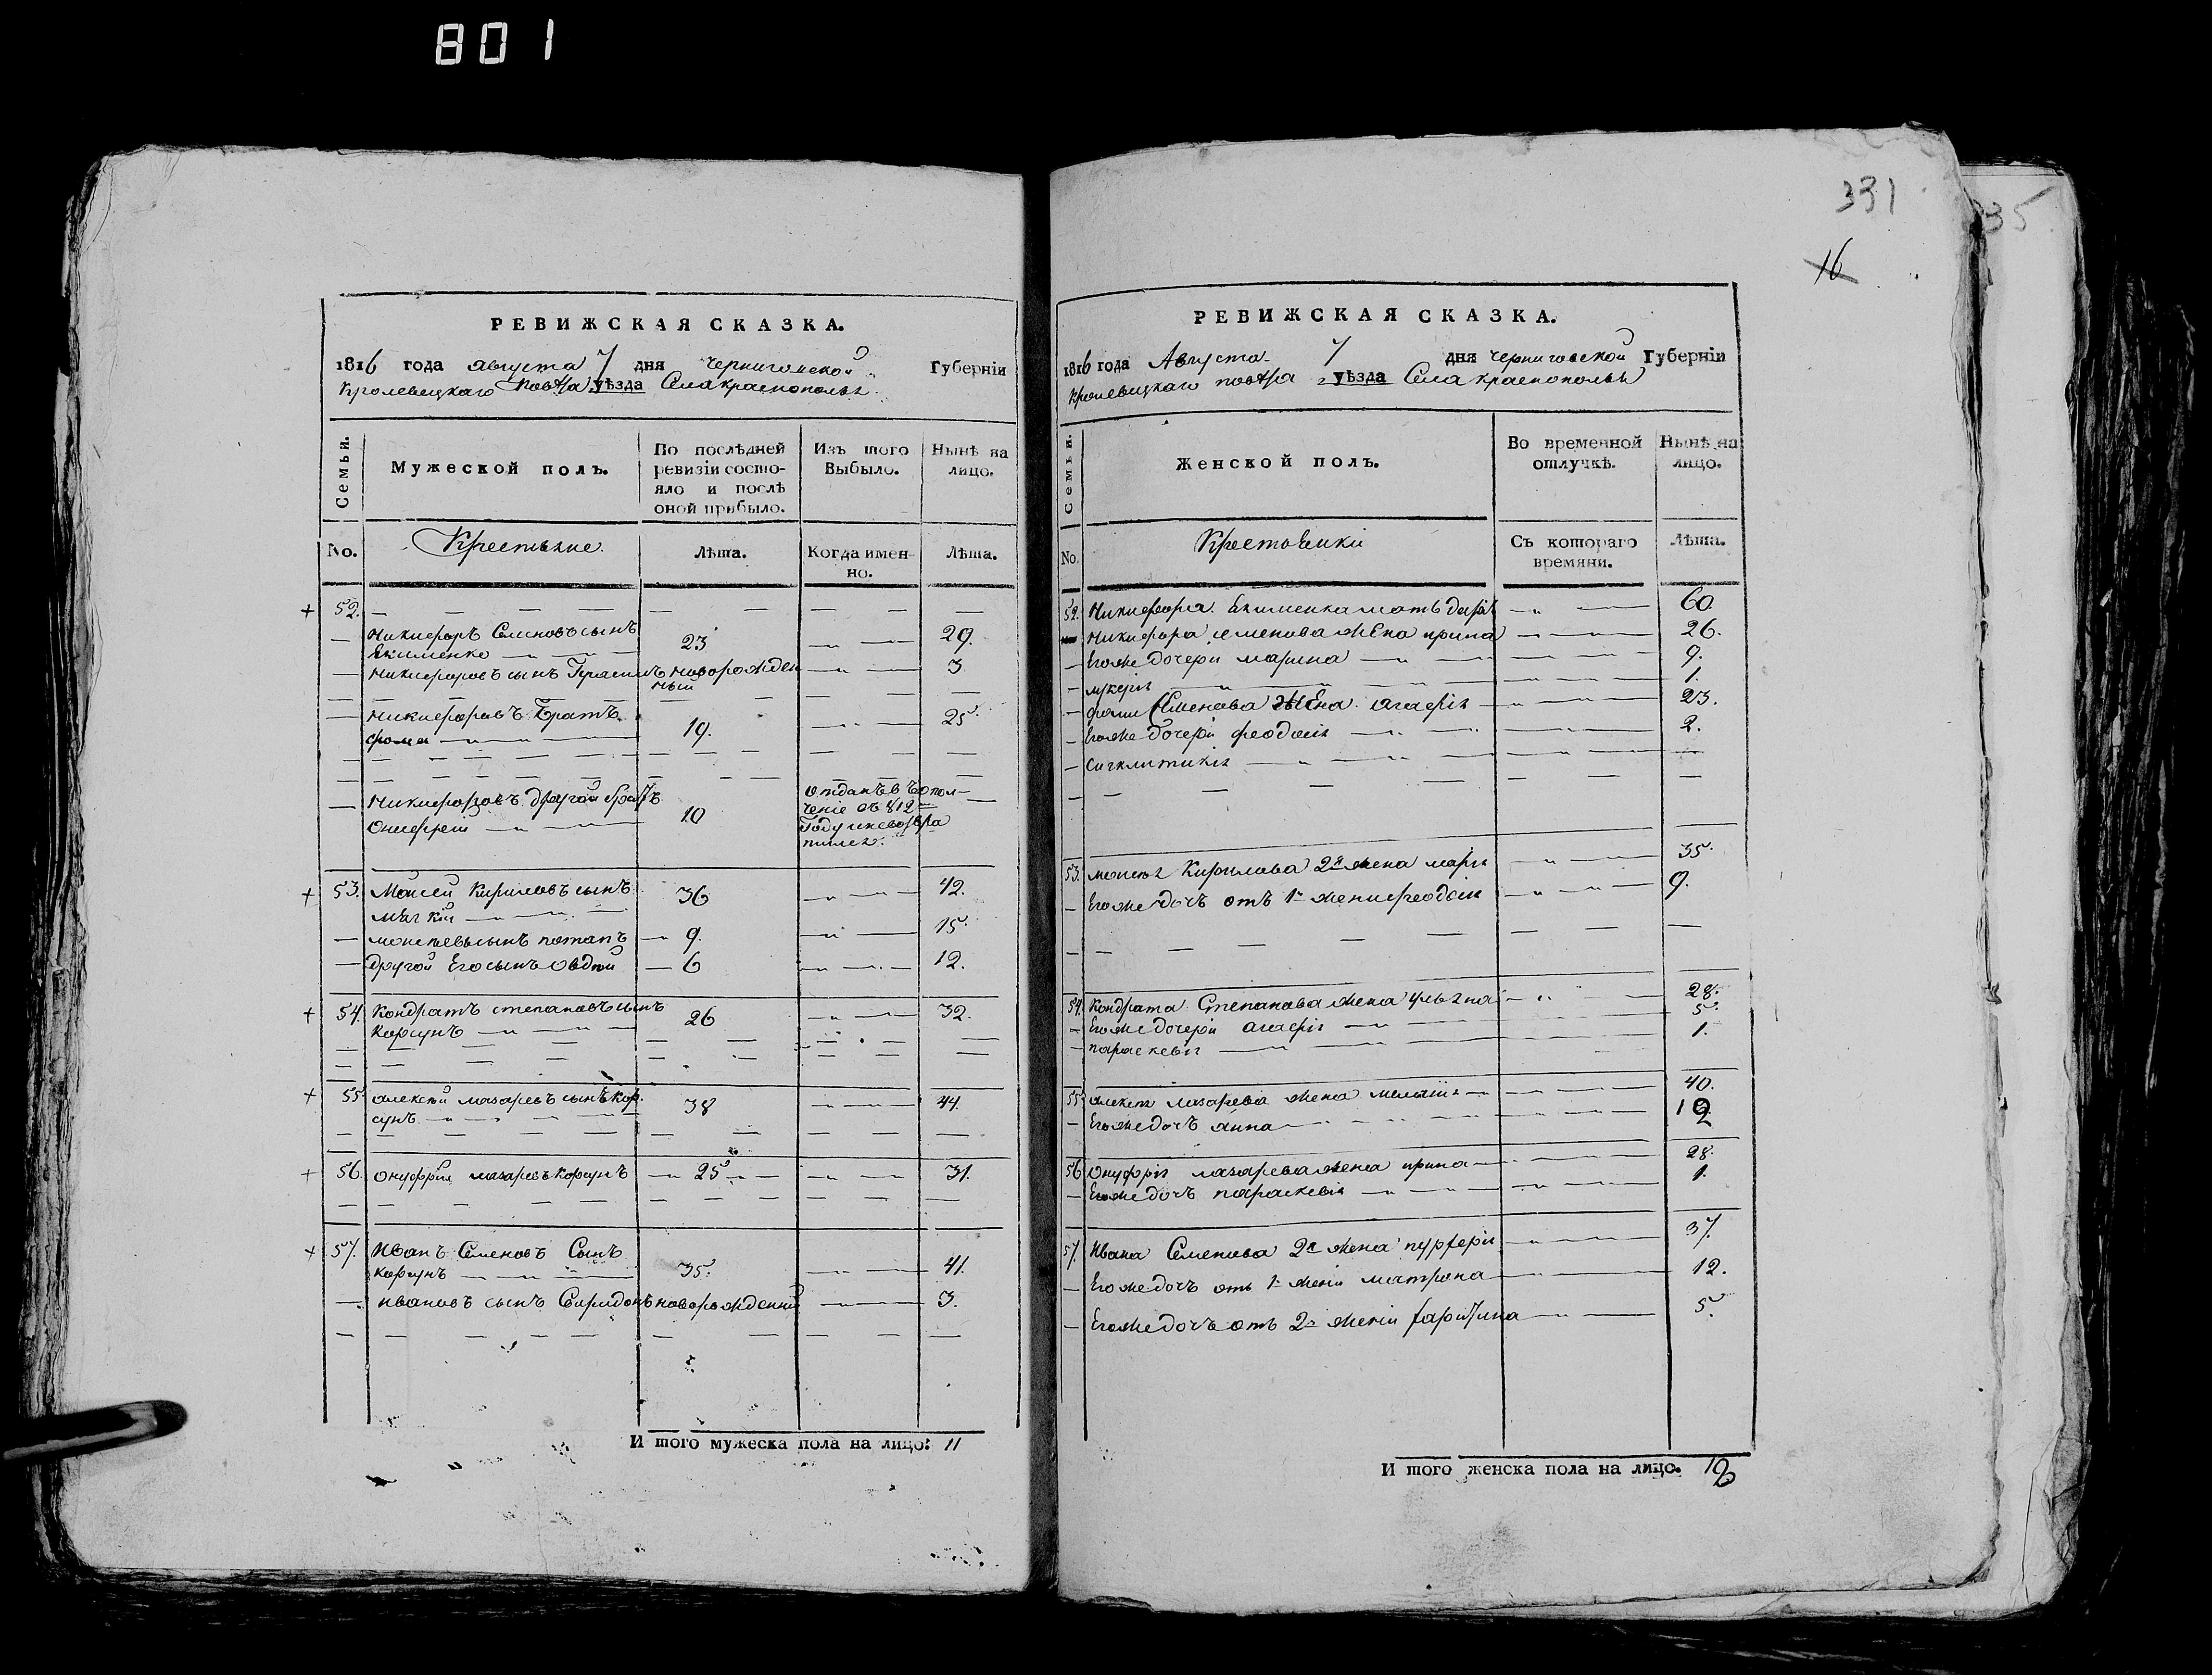 801
331
35
16
РЕВИЖСКАЯ СКАЗКА.
1816 года августа 7 дня Черниговской Губерніи
Кролевецкаго повѣта уѣзда Села Краснополья
Семьи.
Мужеской полъ.
По послѣдней ревизіи состо-
яло и послѣ
оной прибыло.
Изъ того
Выбыло.
Нынѣ на
лицо.
No.
Крестьяне.
Лѣта.
Когда имен-
но.
Лѣта.
52.
Никифоръ Семеновъ сынъ
Екименко 23 29.
Никифоровъ сынъ Герасимъ новорожден
ный 3
Никифоровъ братъ
фома 19. 25.
Никифоровъ другой братъ
Онифрей 10 отданъ въ опол-
ченіе въ 812м
Году и невозвра
тился.
53. Моисей Кириловъ сынъ 36 42.
Мяхкій
моисеевъ сынъ потапъ 9. 15.
другой Его сынъ Овдѣй 6 12.
54. Кондратъ степановъ сынъ
Корсунъ 26 32.
55 алексѣй лазаревъ сынъ Кор-
сунъ 38 44.
56. Онуфрій лазаревъ Корсунъ 25 31.
57. Иванъ Семеновъ Сынъ
корсунъ 35. 41.
ивановъ сынъ Спиридонъ новорожденный 3.
И того мужеска пола на лицо: 11
РЕВИЖСКАЯ СКАЗКА.
1816 года Августа 7 дня Черниговской Губерніи
Кролевецкаго повѣта уѣзда Села краснополья
Семьи.
Женской полъ.
Во временной
отлучкѣ.
Нынѣ на
лицо.
No.
Крестьянки
Съ котораго
времяни.
Лѣта.
52. Никифора Екименка мать дарія 60.
Никифора семенова жена ирина 26.
Егоже дочери марина 9.
лукерія 1.
фомы Семенова жена агафія 23.
Егоже дочери феодосія 2.
Сигклитикія
53. моисея Кирилова 2я жена марія 35.
Егоже дочь отъ 1й жени феодосія 9.
54. Кондрата Степанова жена улияна 28.
Егоже дочери агафія 5.
параскевія 1.
55. алексѣя лазарева жена меланія 40.
Егоже дочь анна 12
56 Онуфрія лазарева жена ирина 28.
Егоже дочь параскевія 1.
57. Ивана Семенова 2я жена 37.
Егоже дочь отъ 1й жени матрона 12.
Егоже дочь отъ 2й жени харитина 5.
И того женска пола на лицо. 16